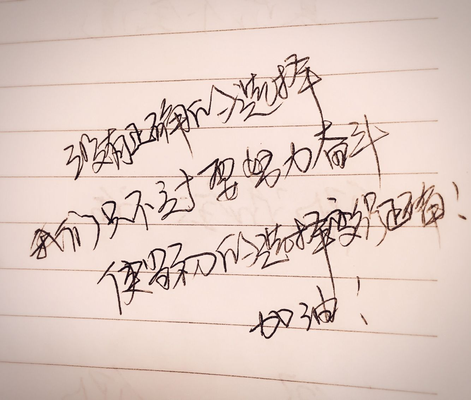 没有正确的选择
我们只不过要努力奋斗
使当初的选择变得正确!
加油!